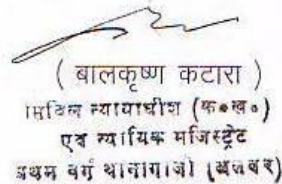 ( बालकृष्ण कटारा )
सिविल न्यायाधीश (क॰ख॰)
एवं न्यायिक मजिस्ट्रेट
प्रथम वर्ग थानागाजी (अलवर)